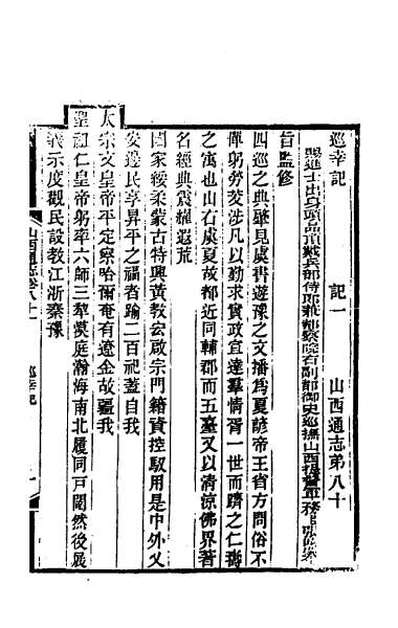 巡幸記　記一　山西通志第八十
賜進士出身頭品頂戴兵部侍郎兼都察院右副都御史巡撫山西提督軍務
旨監修
四巡之典肇見虞書遊豫之文播爲夏諺帝王省方問俗不
憚躬勞爰涉凡以勤求實政宣達羣情胥一世而躋之仁壽
之寓也山右虞夏故都近同輔郡而五臺又以清涼佛界著
名經典震耀遐荒
國家綏柔蒙古特興黃教宏啟宗門藉資控馭用是中外乂
安邊民享昇平之福者踰二百祀蓋自我
太宗文皇帝平定察哈爾奄有遼金故疆我
聖祖仁皇帝躬率六師三犁漠庭瀚海南北履同戸闥然後展
義示度觀民設教江浙秦豫
山西通志卷八十一　巡幸記　一